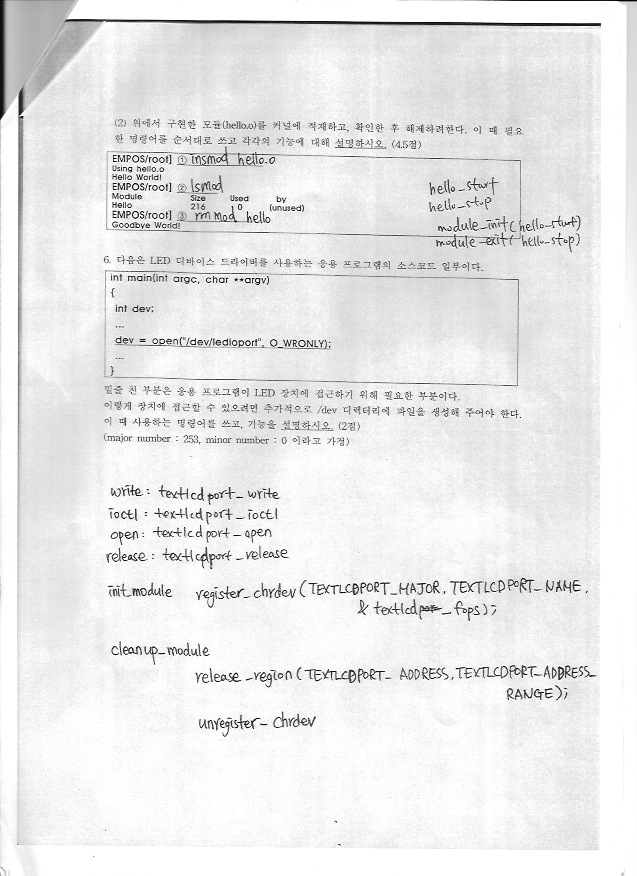 (2) 위에서 구현한 모듈(hello.o)를 커널에 적재하고, 확인한 후 해제하려한다. 이 때 필요
한 명령어를 순서대로 쓰고 각각의 기능에 대해 설명하시오. (4.5점)
EMPOS/root] ① insmod hello.o
Using hello.o
Hello World!
EMPOS/root] ② lsmod
Module Size Used by
Hello 216 0 (unused)
EMPOS/root] ③ rmmod hello
Goodbye World!
hello_start
hello_stop
module_init(hello_start)
module_exit(hello_stop)
6. 다음은 LED 디바이스 드라이버를 사용하는 응용 프로그램의 소스코드 일부이다.
int main(int argc, char **argv)
{
int dev;
...
dev = open("/dev/ledioport", O_WRONLY);
...
}
밑줄 친 부분은 응용 프로그램이 LED 장치에 접근하기 위해 필요한 부분이다.
이렇게 장치에 접근할 수 있으려면 추가적으로 /dev 디렉터리에 파일을 생성해 주어야 한다.
이 때 사용하는 명령어를 쓰고, 기능을 설명하시오. (2점)
(major number : 253, minor number : 0 이라고 가정)
write : textlcdport_write
ioctl : textlcdport_ioctl
open : textlcdport_open
release : textlcdport_release
init_module register_chrdev(TEXTLCDPORT_MAJOR, TEXTLCDPORT_NAME,
& textlcdport_fops);
cleanup_module
release_region(TEXTLCDPORT_ADDRESS, TEXTLCDPORT_ADDRESS_
RANGE);
unregister_chrdev